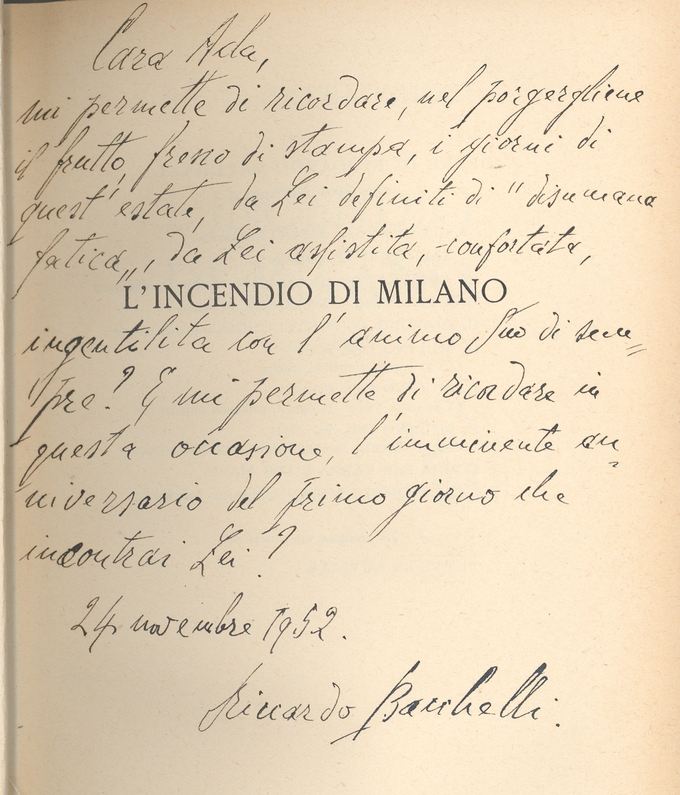 Cara Ada,
mi permette di ricordare, nel porgergliene
il frutto, fresco di stampa, i giorni di
quest'estate, da Lei definiti di "disumana
fatica„, da Lei assistita, confortata,
L'INCENDIO DI MILANO
ingentilita con l'animo Suo di sem=
pre? E mi permette di ricordare in
questa occasione, l'imminente an=
niversario del primo giorno che
incontrai Lei?
24 novembre 1952.
Riccardo Bacchelli.